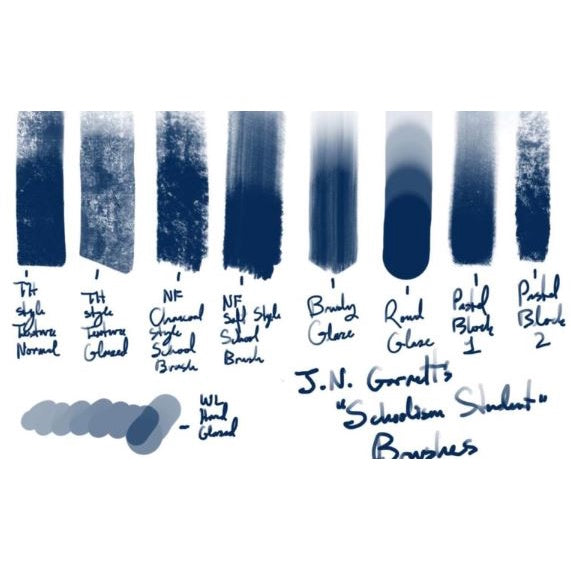 TH
Style
Texture
Normal
TH
Style
Texture
Glazed
NF
Charcoal
Style
School
Brush
NF
Soft Style
School
Brush
Brushy
Glaze
Round
Glaze
Pastel
Block
1
Pastel
Block
2
WL
Hard
Glazed
J.N. Garrett's
"Schoolism Student"
Brushes